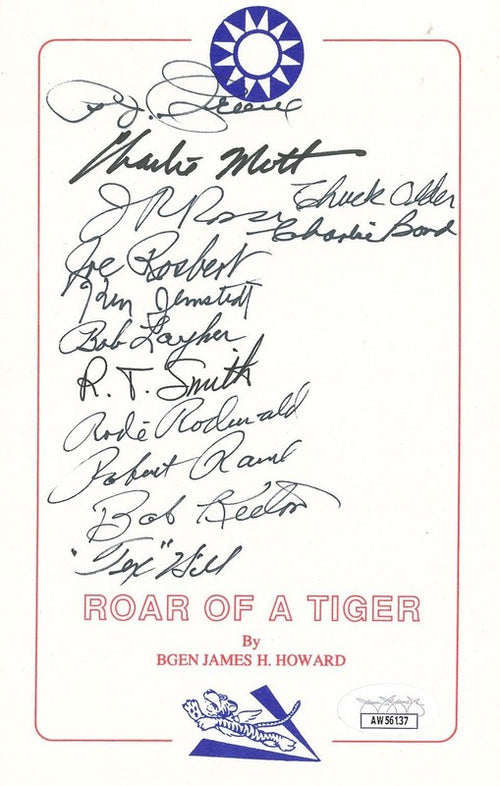 P. J. Greene
Charlie Mott
J R Rossi
Chuck Older
Charlie Bond
Joe Rosbert
Ken Jernstedt
Bob Layher
R. T. Smith
Rode Rodewald
Robert Rane
Bob Keeton
"Tex" Hill
ROAR OF A TIGER
By
BGEN JAMES H. HOWARD
AW56137